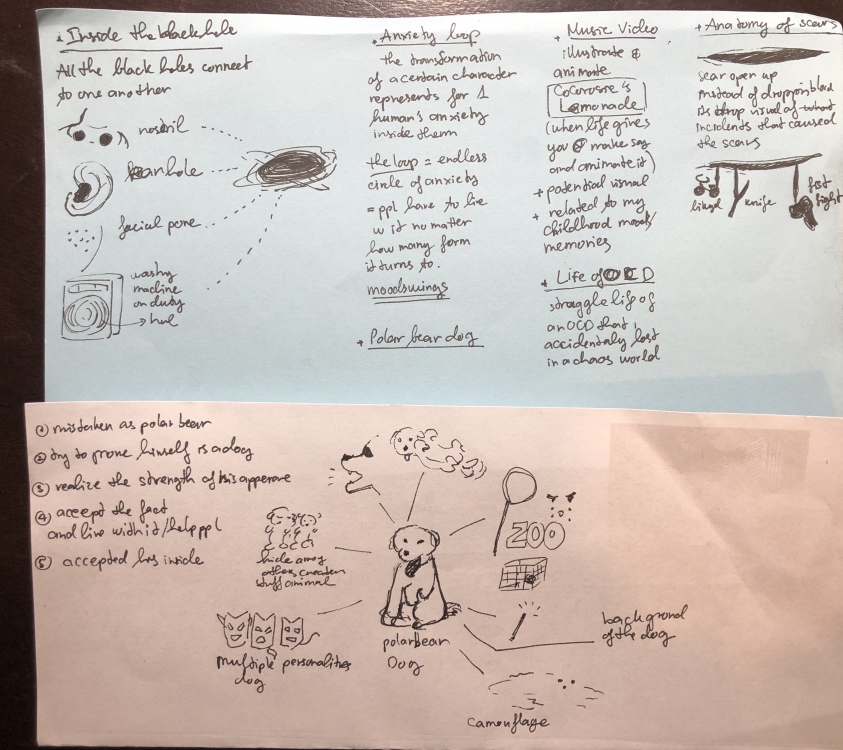 Inside the black hole
All the black holes connect
to one another
nostril
ear hole
facial pore
washy
machine
on duty
Anxiety loop
the transformation
of a certain character
represents for 1
human's anxiety
inside them
the loop = endless
circle of anxiety
= ppl have to live
w it no matter
how many form
it turns to.
moodswings
+ Polar bear dog
+ Music Video
illustrate &
animate
Cocorosie's
Lemonade
(when life gives
you make say
and animate it)
+ potential visual
+ related to my
childhood mood/
memories
+ Life of OCD
struggle life of
an OCD that
accidentaly lost
in a chaos world
+ Anatomy of scars
scar open up
instead of dropping blood
its drop visual of what
incidents that caused
the scars
knife
fist
fight
① mistaken as polar bear
② try to prove himself is a dog
③ realize the strength of his
④ accept the fact
and live with it/help ppl
⑤ accepted his inside
hide among
others
stuff animal
ZOO
multiple personalities
dog
polarbear
Dog
background
of the dog
camouflage